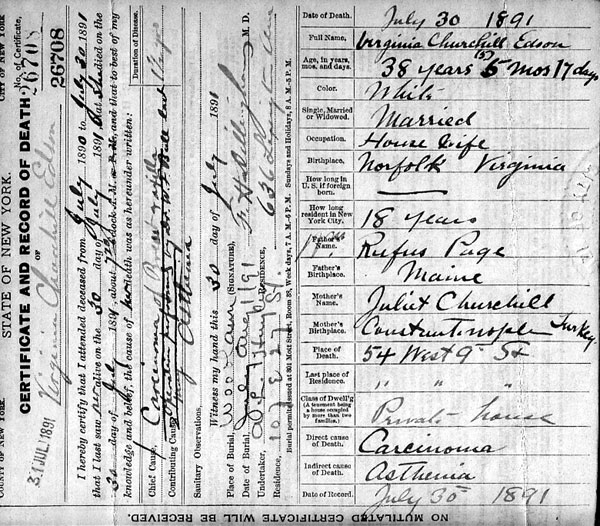 STATE OF NEW YORK.
CERTIFICATE AND RECORD OF DEATH
No. of Certificate,
26708
26708
OF
Virginia Churchill Edson
31 JUL 1891
I hereby certify that I attended deceased from July 1890 to July 30 1891
that I last saw her alive on the 30 day of July 1891, that She died on the
30 day of July 1891, about 7 o'clock A.M. or P.M., and that to the best of my
knowledge and belief, the cause of her death was as hereunder written:
Duration of Disease.
Chief Cause, Carcinoma of
Contributing Cause, Asthenia
Sanitary Observations,
Witness my hand this 30 day of July 1891
(SIGNATURE), M. D.
Place of Burial, Woodlawn
RESIDENCE, 636 Lexington Ave
Date of Burial, Aug 1 1891
Undertaker,
Residence, 107 E 27 St.
Burial permits issued at 301 Mott Street, Room 33, Week days, 7 A.M.–6 P.M. Sundays and Holidays, 8 A.M.–5 P.M.
Date of Death. July 30 1891
Full Name, Virginia Churchill Edson
Age, in years, mos. and days. 38 years 5 mos 17 days
Color. White
Single, Married or Widowed. Married
Occupation. House wife
Birthplace. Norfolk Virginia
How long in U. S. if foreign born.
How long resident in New York City. 18 years
Father's Name. Rufus Page
Father's Birthplace. Maine
Mother's Name. Juliet Churchill
Mother's Birthplace. Constantinople Turkey
Place of Death. 54 West 9th St
Last place of Residence. " " "
Class of Dwell'g (A tenement being a house occupied by more than two families.) Private house
Direct cause of Death. Carcinoma
Indirect cause of Death. Asthenia
Date of Record. July 30th 1891
NO MUTILATED CERTIFICATE WILL BE RECEIVED.